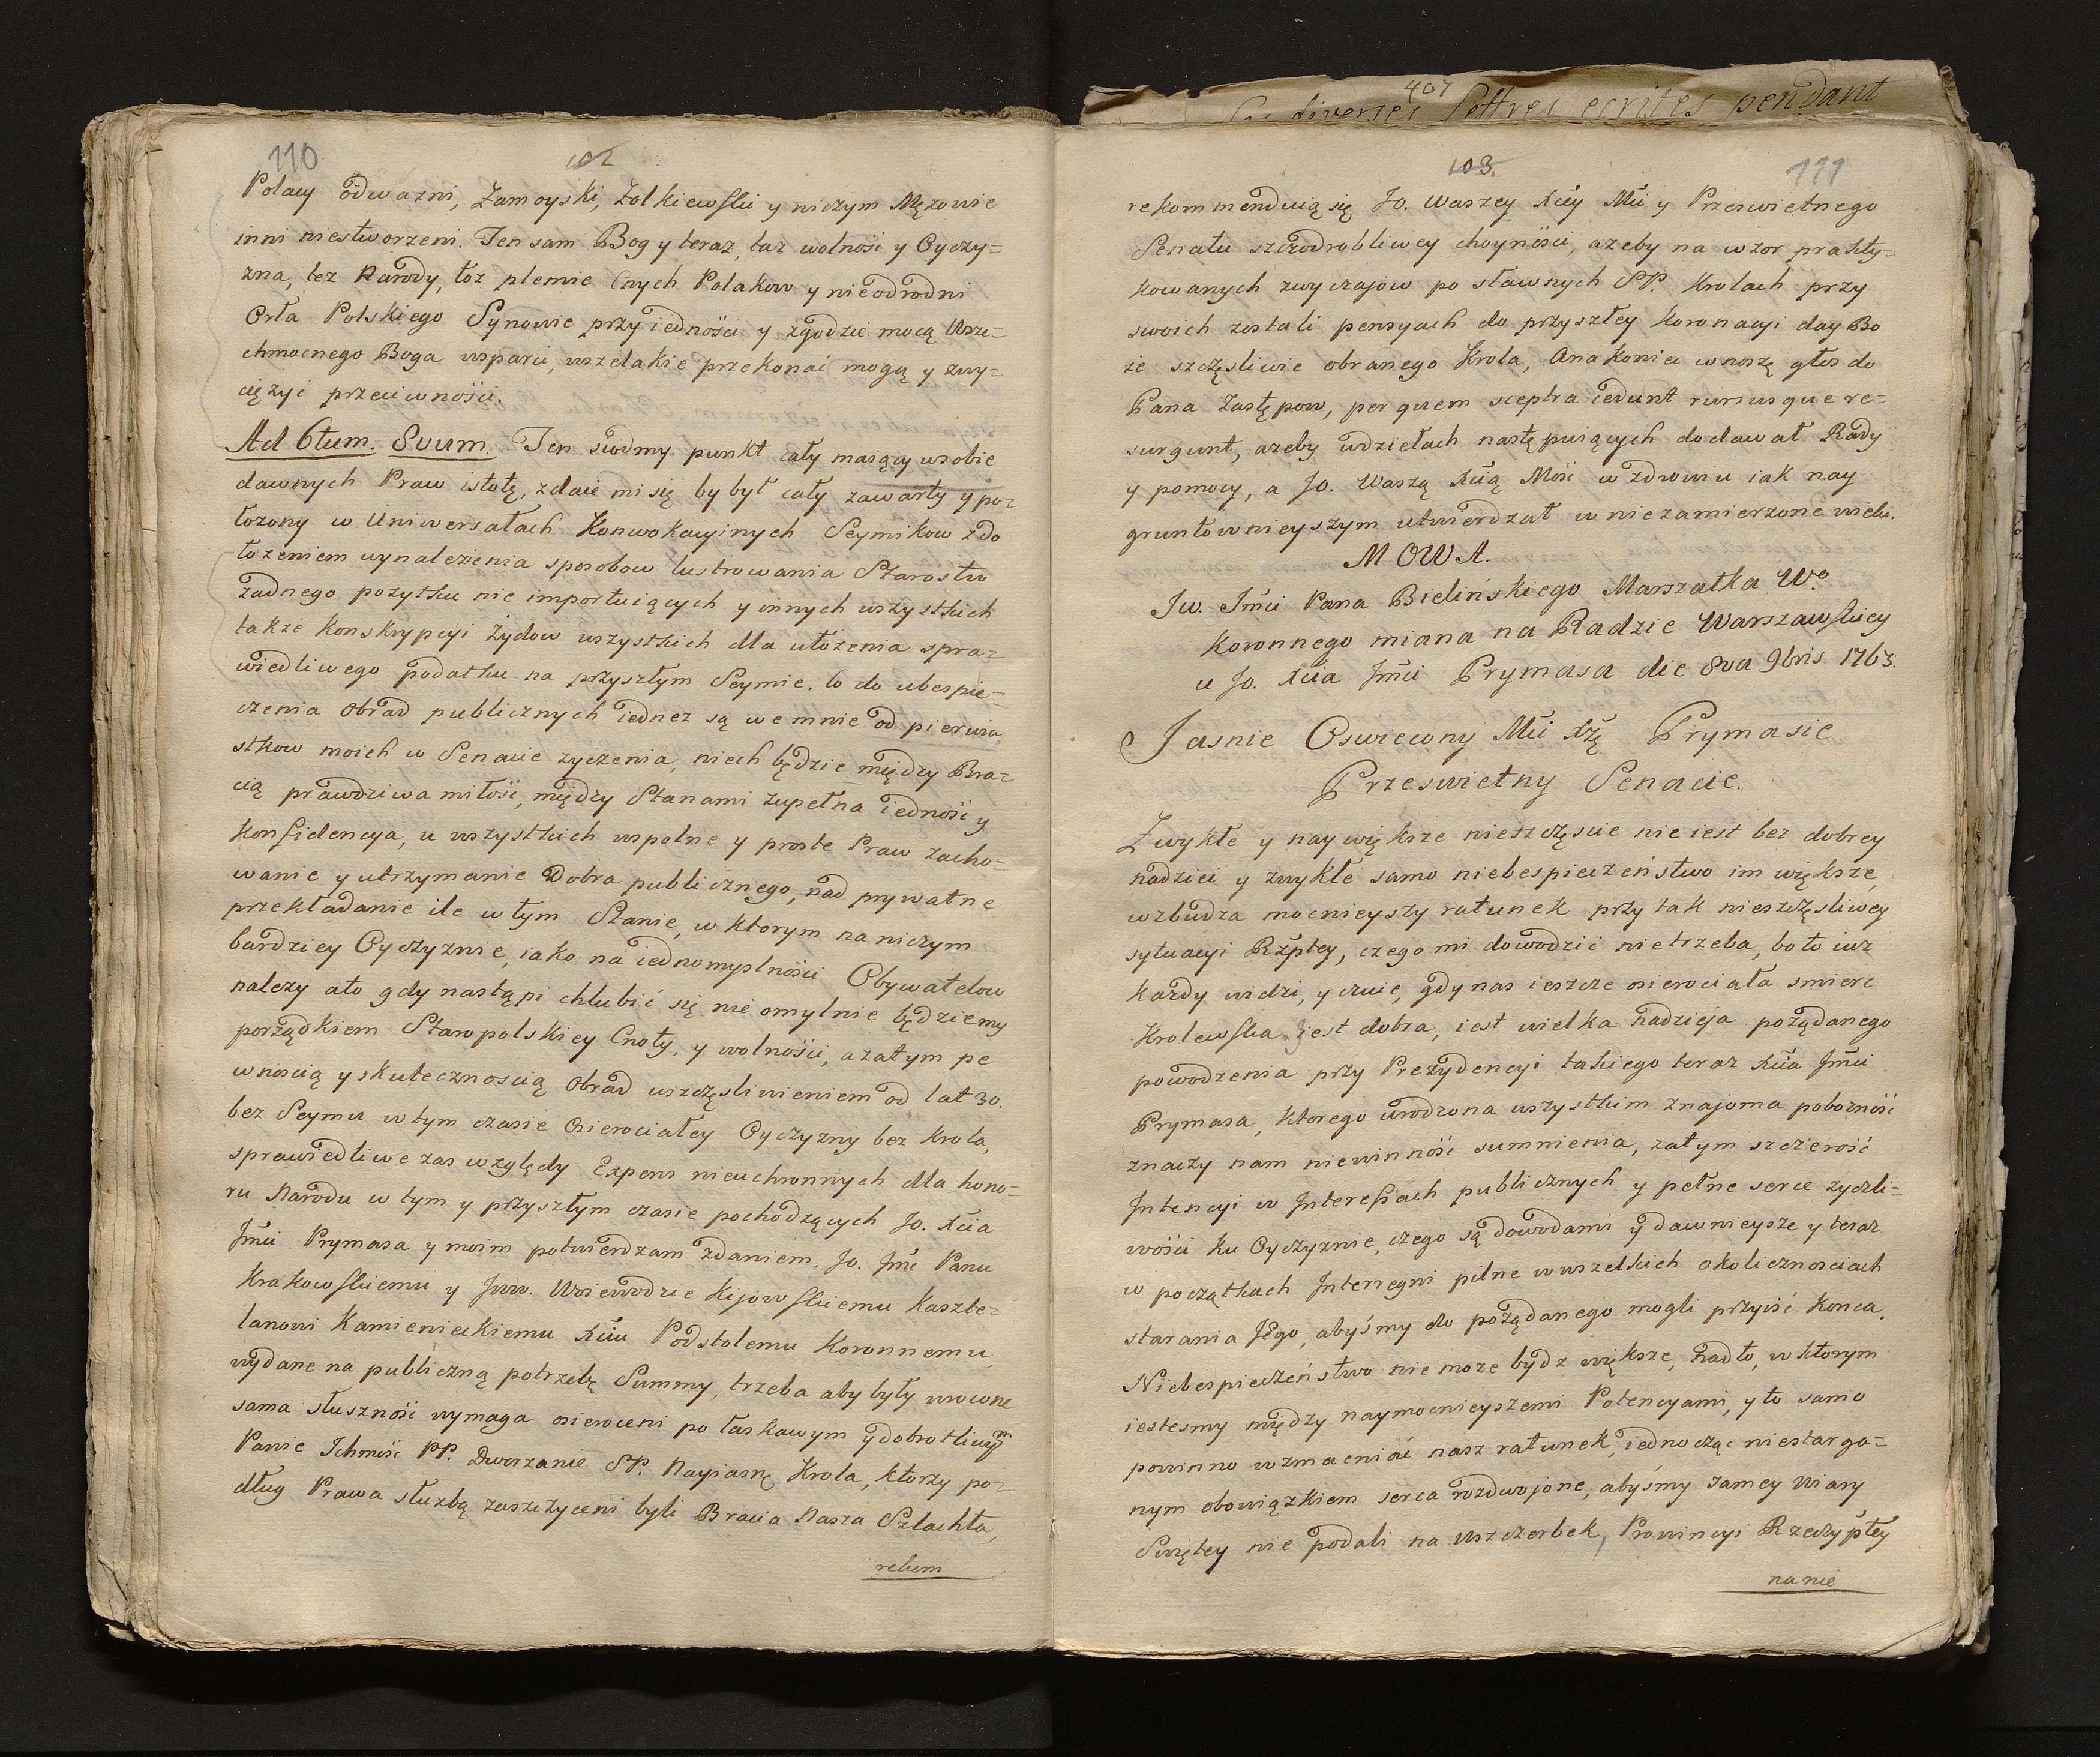 110
102
Polacy odwazni, Zamoyski, Zolkiewski y niczym Męzowie
inni niestworzeni. Ten sam Bog y teraz, taz wolność y Oyczy=
zna, tez Narody, toz plemie Cnych Polakow y nieodrodni
Orła Polskiego Synowie przy iedności y zgodzie mocą Wsze=
chmocnego Boga wsparci, wszelakie przekonać mogą y zwy=
ciężyć przeciwności.
Ad 6tum. 8vum. Ten siodmy punkt cały maiący w sobie
dawnych Praw istotę, zdaie mi się by był cały zawarty y po=
łozony w Uniwersałach Konwokacyinych Seymikow z do
łozeniem wynalezienia sposobow lustrowania Starostw
zadnego pozytku nie importuiących y innych wszystkich
takze Konskrypcyi Żydow wszystkich dla ułozenia spra=
wiedliwego podatku na przyszłym Seymie. Co do ubespie=
czenia Obrad publicznych iednez są we mnie od pierwia
stkow moich w Senacie zyczenia, niech będzie między Bra=
cią prawdziwa miłość, między Stanami zupełna iedność y
konfidencya, u wszystkich wspolne y proste Praw zacho=
wanie y utrzymanie Dobra publicznego, nad prywatne
przekładanie ile w tym Stanie, w ktorym na niczym
bardziey Oyczyznie, iako na iednomyslności Obywatelow
nalezy ato gdy nastąpi chlubić się nie omylnie będziemy
porządkiem Staropolskiey Cnoty, y wolności, a zatym pe
wnoscią y skutecznoscią Obrad uszczęsliwieniem od lat 30.
bez Seymu w tym czasie Osierociałey Oyczyzny bez Krola,
sprawiedliwe zas względy Expens nieuchronnych dla hono=
ru Narodu w tym y przyszłym czasie pochodzących Jo. Xcia
Jmci Prymasa y moim potwierdzam zdaniem. Jo. Jmc Panu
Krakowskiemu y Jww. Woiewodzie Kijowskiemu Kaszte=
lanowi Kamienieckiemu Xciu Podstolemu Koronnemu,
wydane na publiczną potrzebę Summy, trzeba aby były wrocone
sama słuszność wymaga osieroceni po łaskawym y dobrotliwym
Panie Ichmość PP. Dworzanie SP. Nayiasnę Krola, ktorzy po=
dług Prawa służbą zaszczyceni byli Bracia Nasza Szlachta,
rekom
407
diverses Lettres ecrites pendant
103.
111
rekommenduią się Jo. Waszey Xcey Mci y Przeswietnego
Senatu szczodrobliwey choyności, azeby na wzor prakty=
kowanych zwyczajow po sławnych SP. Krolach przy
swoich zostali pensyach do przyszłey Koronacyi day Bo
ze szczęsliwie obranego Krola, Anakoniec wnoszę głos do
Pana Zastępow, per quem sceptra cedunt rursusque re=
surgunt, azeby udziełach następuiących dodawał Rady
y pomocy, a Jo. Waszą Xcią Mość w zdrowiu iak nay
gruntownieyszym utwierdzał w niezamierzone wieki.
MOWA.
Jw. Jmci Pana Bielińskiego Marszałka Wo
Koronnego miana na Radzie Warszawskiey
u Jo. Xcia Jmci Prymasa die 8va 9bris 1763.
Jasnie Oswiecony Mci Xżę Prymasie
Przeswietny Senacie.
Zwykłe y naywiększe nieszczęscie nie iest bez dobrey
nadziei y zwykłe samo niebespieczeństwo im większe,
wzbudza mocnieyszy ratunek przy tak nieszczęsliwey
sytuacyi Rzpltey, czego mi dowodzić nie trzeba, bo to iuz
kazdy widzi, y czuie, gdy nas ieszcze osierociała smierc
Krolewska jest dobra, iest wielka nadzieja pożądanego
powodzenia przy Prezydencyi takiego teraz Xcia Jmci
Prymasa, ktorego urodzona wszystkim znajoma pobozność
znaczy nam niewinność sumnienia, zatym szczerość
Intencyi w Interessach publicznych y pełne serce zyczli=
wości ku Oyczyznie, czego są dowodami y dawnieysze y teraz
w początkach Interregni pilne w wszelkich okolicznosciach
starania Jego, abyśmy do pożądanego mogli przyiść konca.
Niebespieczeństwo nie moze bydz większe, nad to, w ktorym
iestesmy między naymocnieyszemi Potencyami, y to samo
powinno wzmacniać nasz ratunek, iednocząc niestarga=
nym obowiązkiem serca rozdwojone, abyśmy samey Wiary
Swiętey nie podali na uszczerbek, Prowincyi Rzeczypltey
na nie